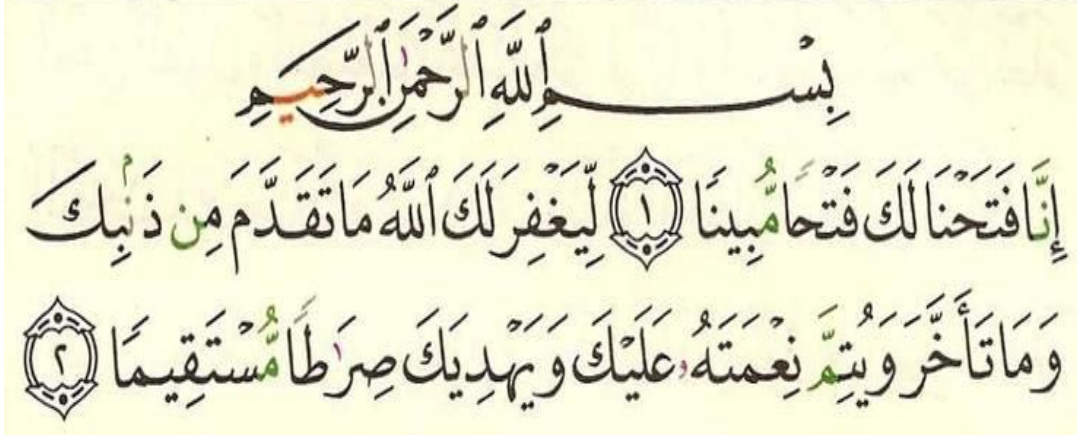 بِسْمِ ٱللَّهِ ٱلرَّحْمَٰنِ ٱلرَّحِيمِ
إِنَّا فَتَحْنَا لَكَ فَتْحًا مُّبِينًا ١ لِّيَغْفِرَ لَكَ ٱللَّهُ مَا تَقَدَّمَ مِن ذَنۢبِكَ
وَمَا تَأَخَّرَ وَيُتِمَّ نِعْمَتَهُۥ عَلَيْكَ وَيَهْدِيَكَ صِرَٰطًا مُّسْتَقِيمًا ٢